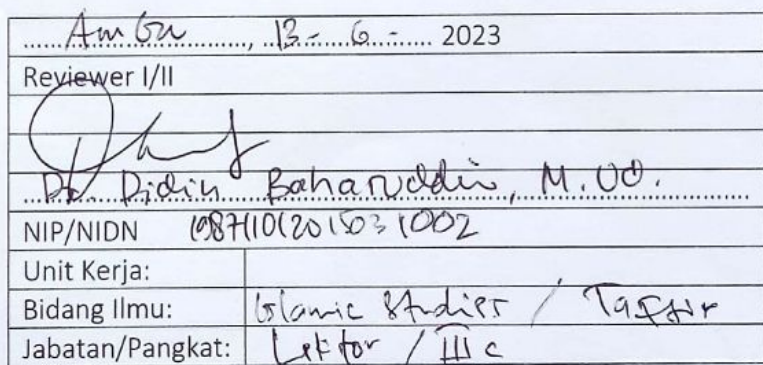 Ambon, 13 - 6 - 2023
Reviewer I/II
Dr. Didin Baharuddin, M.Ud.
NIP/NIDN 198711012015031002
Unit Kerja:
Bidang Ilmu: Islamic Studies / Tafsir
Jabatan/Pangkat: Lektor / III c